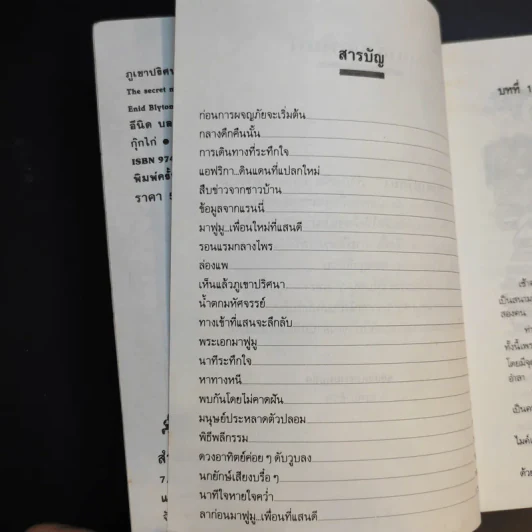 ภูเขาปริศนา
The secret m
Enid Blyton
อีนิด
กุ๊กไก่
ISBN 974
พิมพ์ครั้
ราคา
สารบัญ
ก่อนการผจญภัยจะเริ่มต้น
กลางดึกคืนนั้น
การเดินทางที่ระทึกใจ
แอฟริกา..ดินแดนที่แปลกใหม่
สืบข่าวจากชาวบ้าน
ข้อมูลจากแรนนี่
มาฟูมู..เพื่อนใหม่ที่แสนดี
รอนแรมกลางไพร
ล่องแพ
เห็นแล้วภูเขาปริศนา
น้ำตกมหัศจรรย์
ทางเข้าที่แสนจะลึกลับ
พระเอกมาฟูมู
นาทีระทึกใจ
หาทางหนี
พบกันโดยไม่คาดฝัน
มนุษย์ประหลาดตัวปลอม
พิธีพลีกรรม
ดวงอาทิตย์ค่อย ๆ ดับวูบลง
นกยักษ์เสียงบรื่อ ๆ
นาทีใจหายใจคว่ำ
ลาก่อนมาฟูมู..เพื่อนที่แสนดี
บทที่ 1
สองคน
โดยมีจุด